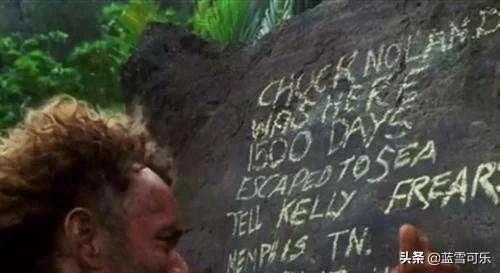 CHUCK NOLAND
WAS HERE
1500 DAYS
ESCAPED TO SEA
TELL KELLY FREARS
MEMPHIS TN.
头条 @蓝雪可乐